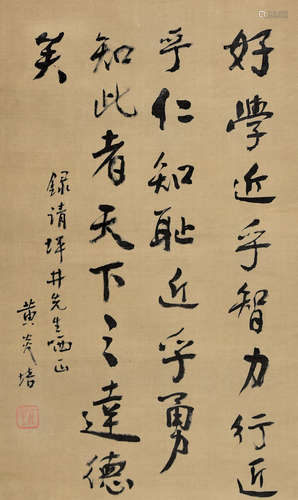 好學近乎智力行近
乎仁知恥近乎勇
知此者天下之達德
矣
錄請坪井先生哂正
黃炎培